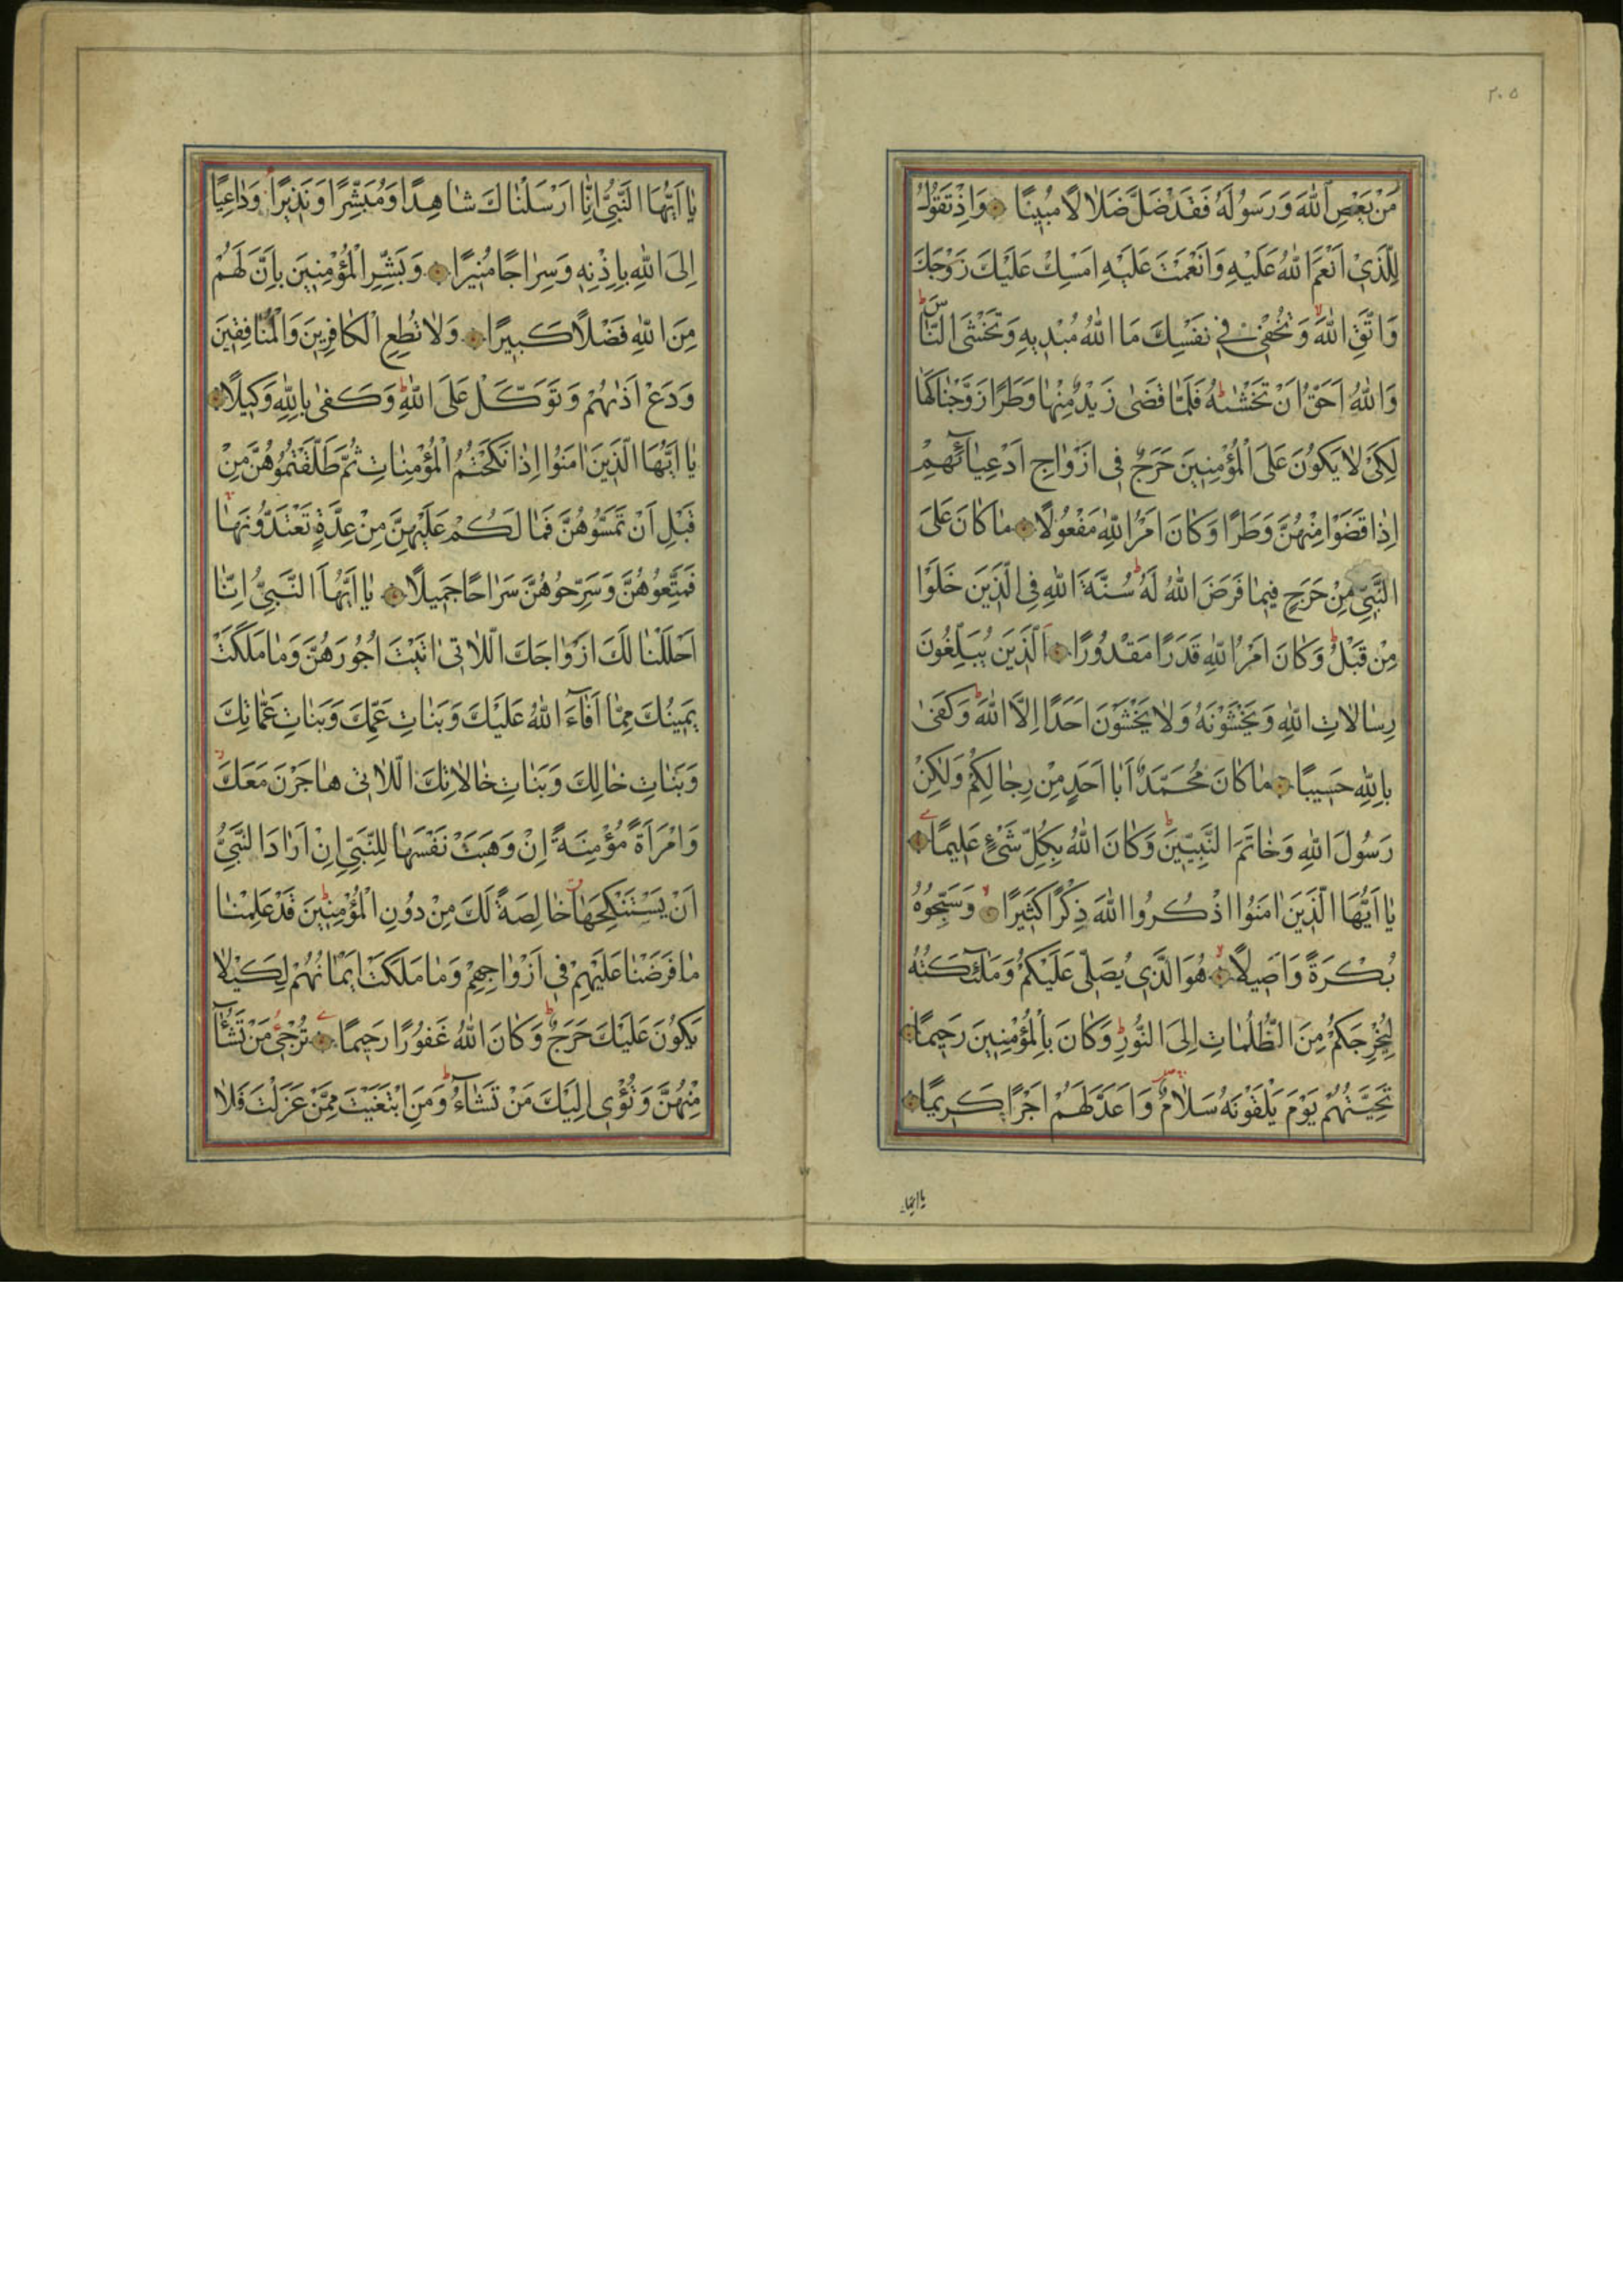 ٢٠٥
مَنْ يَعْصِ اللّٰهَ وَرَسُولَهُ فَقَدْ ضَلَّ ضَلَالًا مُبِينًا وَاِذْ تَقُولُ
لِلَّذٖي اَنْعَمَ اللّٰهُ عَلَيْهِ وَاَنْعَمْتَ عَلَيْهِ اَمْسِكْ عَلَيْكَ زَوْجَكَ
وَاتَّقِ اللّٰهَ وَتُخْفٖي فٖي نَفْسِكَ مَا اللّٰهُ مُبْدٖيهِ وَتَخْشَى النَّاسَ
وَاللّٰهُ اَحَقُّ اَنْ تَخْشٰيهُ فَلَمَّا قَضٰى زَيْدٌ مِنْهَا وَطَرًا زَوَّجْنَاكَهَا
لِكَىْ لَا يَكُونَ عَلَى الْمُؤْمِنٖينَ حَرَجٌ فٖى اَزْوَاجِ اَدْعِيَائِهِمْ
اِذَا قَضَوْا مِنْهُنَّ وَطَرًا وَكَانَ اَمْرُ اللّٰهِ مَفْعُولًا مَا كَانَ عَلَى
النَّبِيِّ مِنْ حَرَجٍ فٖيمَا فَرَضَ اللّٰهُ لَهُ سُنَّةَ اللّٰهِ فِى الَّذٖينَ خَلَوْا
مِنْ قَبْلُ وَكَانَ اَمْرُ اللّٰهِ قَدَرًا مَقْدُورًا اَلَّذٖينَ يُبَلِّغُونَ
رِسَالَاتِ اللّٰهِ وَيَخْشَوْنَهُ وَلَا يَخْشَوْنَ اَحَدًا اِلَّا اللّٰهَ وَكَفٰى
بِاللّٰهِ حَسٖيبًا مَا كَانَ مُحَمَّدٌ اَبَا اَحَدٍ مِنْ رِجَالِكُمْ وَلٰكِنْ
رَسُولَ اللّٰهِ وَخَاتَمَ النَّبِيّٖنَ وَكَانَ اللّٰهُ بِكُلِّ شَىْءٍ عَلٖيمًا
يَا اَيُّهَا الَّذٖينَ اٰمَنُوا اذْكُرُوا اللّٰهَ ذِكْرًا كَثٖيرًا وَسَبِّحُوهُ
بُكْرَةً وَاَصٖيلًا هُوَ الَّذٖي يُصَلّٖى عَلَيْكُمْ وَمَلٰئِكَتُهُ
لِيُخْرِجَكُمْ مِنَ الظُّلُمَاتِ اِلَى النُّورِ وَكَانَ بِالْمُؤْمِنٖينَ رَحٖيمًا
تَحِيَّتُهُمْ يَوْمَ يَلْقَوْنَهُ سَلَامٌ وَاَعَدَّ لَهُمْ اَجْرًا كَرٖيمًا
يا ايها
يَا اَيُّهَا النَّبِيُّ اِنَّا اَرْسَلْنَاكَ شَاهِدًا وَمُبَشِّرًا وَنَذٖيرًا وَدَاعِيًا
اِلَى اللّٰهِ بِاِذْنِهٖ وَسِرَاجًا مُنٖيرًا وَبَشِّرِ الْمُؤْمِنٖينَ بِاَنَّ لَهُمْ
مِنَ اللّٰهِ فَضْلًا كَبٖيرًا وَلَا تُطِعِ الْكَافِرٖينَ وَالْمُنَافِقٖينَ
وَدَعْ اَذٰيهُمْ وَتَوَكَّلْ عَلَى اللّٰهِ وَكَفٰى بِاللّٰهِ وَكٖيلًا
يَا اَيُّهَا الَّذٖينَ اٰمَنُوا اِذَا نَكَحْتُمُ الْمُؤْمِنَاتِ ثُمَّ طَلَّقْتُمُوهُنَّ مِنْ
قَبْلِ اَنْ تَمَسُّوهُنَّ فَمَا لَكُمْ عَلَيْهِنَّ مِنْ عِدَّةٍ تَعْتَدُّونَهَا
فَمَتِّعُوهُنَّ وَسَرِّحُوهُنَّ سَرَاحًا جَمٖيلًا يَا اَيُّهَا النَّبِيُّ اِنَّا
اَحْلَلْنَا لَكَ اَزْوَاجَكَ اللَّاتٖى اٰتَيْتَ اُجُورَهُنَّ وَمَا مَلَكَتْ
يَمٖينُكَ مِمَّا اَفَاءَ اللّٰهُ عَلَيْكَ وَبَنَاتِ عَمِّكَ وَبَنَاتِ عَمَّاتِكَ
وَبَنَاتِ خَالِكَ وَبَنَاتِ خَالَاتِكَ اللَّاتٖى هَاجَرْنَ مَعَكَ
وَامْرَاَةً مُؤْمِنَةً اِنْ وَهَبَتْ نَفْسَهَا لِلنَّبِيِّ اِنْ اَرَادَ النَّبِيُّ
اَنْ يَسْتَنْكِحَهَا خَالِصَةً لَكَ مِنْ دُونِ الْمُؤْمِنٖينَ قَدْ عَلِمْنَا
مَا فَرَضْنَا عَلَيْهِمْ فٖى اَزْوَاجِهِمْ وَمَا مَلَكَتْ اَيْمَانُهُمْ لِكَيْلَا
يَكُونَ عَلَيْكَ حَرَجٌ وَكَانَ اللّٰهُ غَفُورًا رَحٖيمًا تُرْجٖى مَنْ تَشَاءُ
مِنْهُنَّ وَتُؤْوٖى اِلَيْكَ مَنْ تَشَاءُ وَمَنِ ابْتَغَيْتَ مِمَّنْ عَزَلْتَ فَلَا